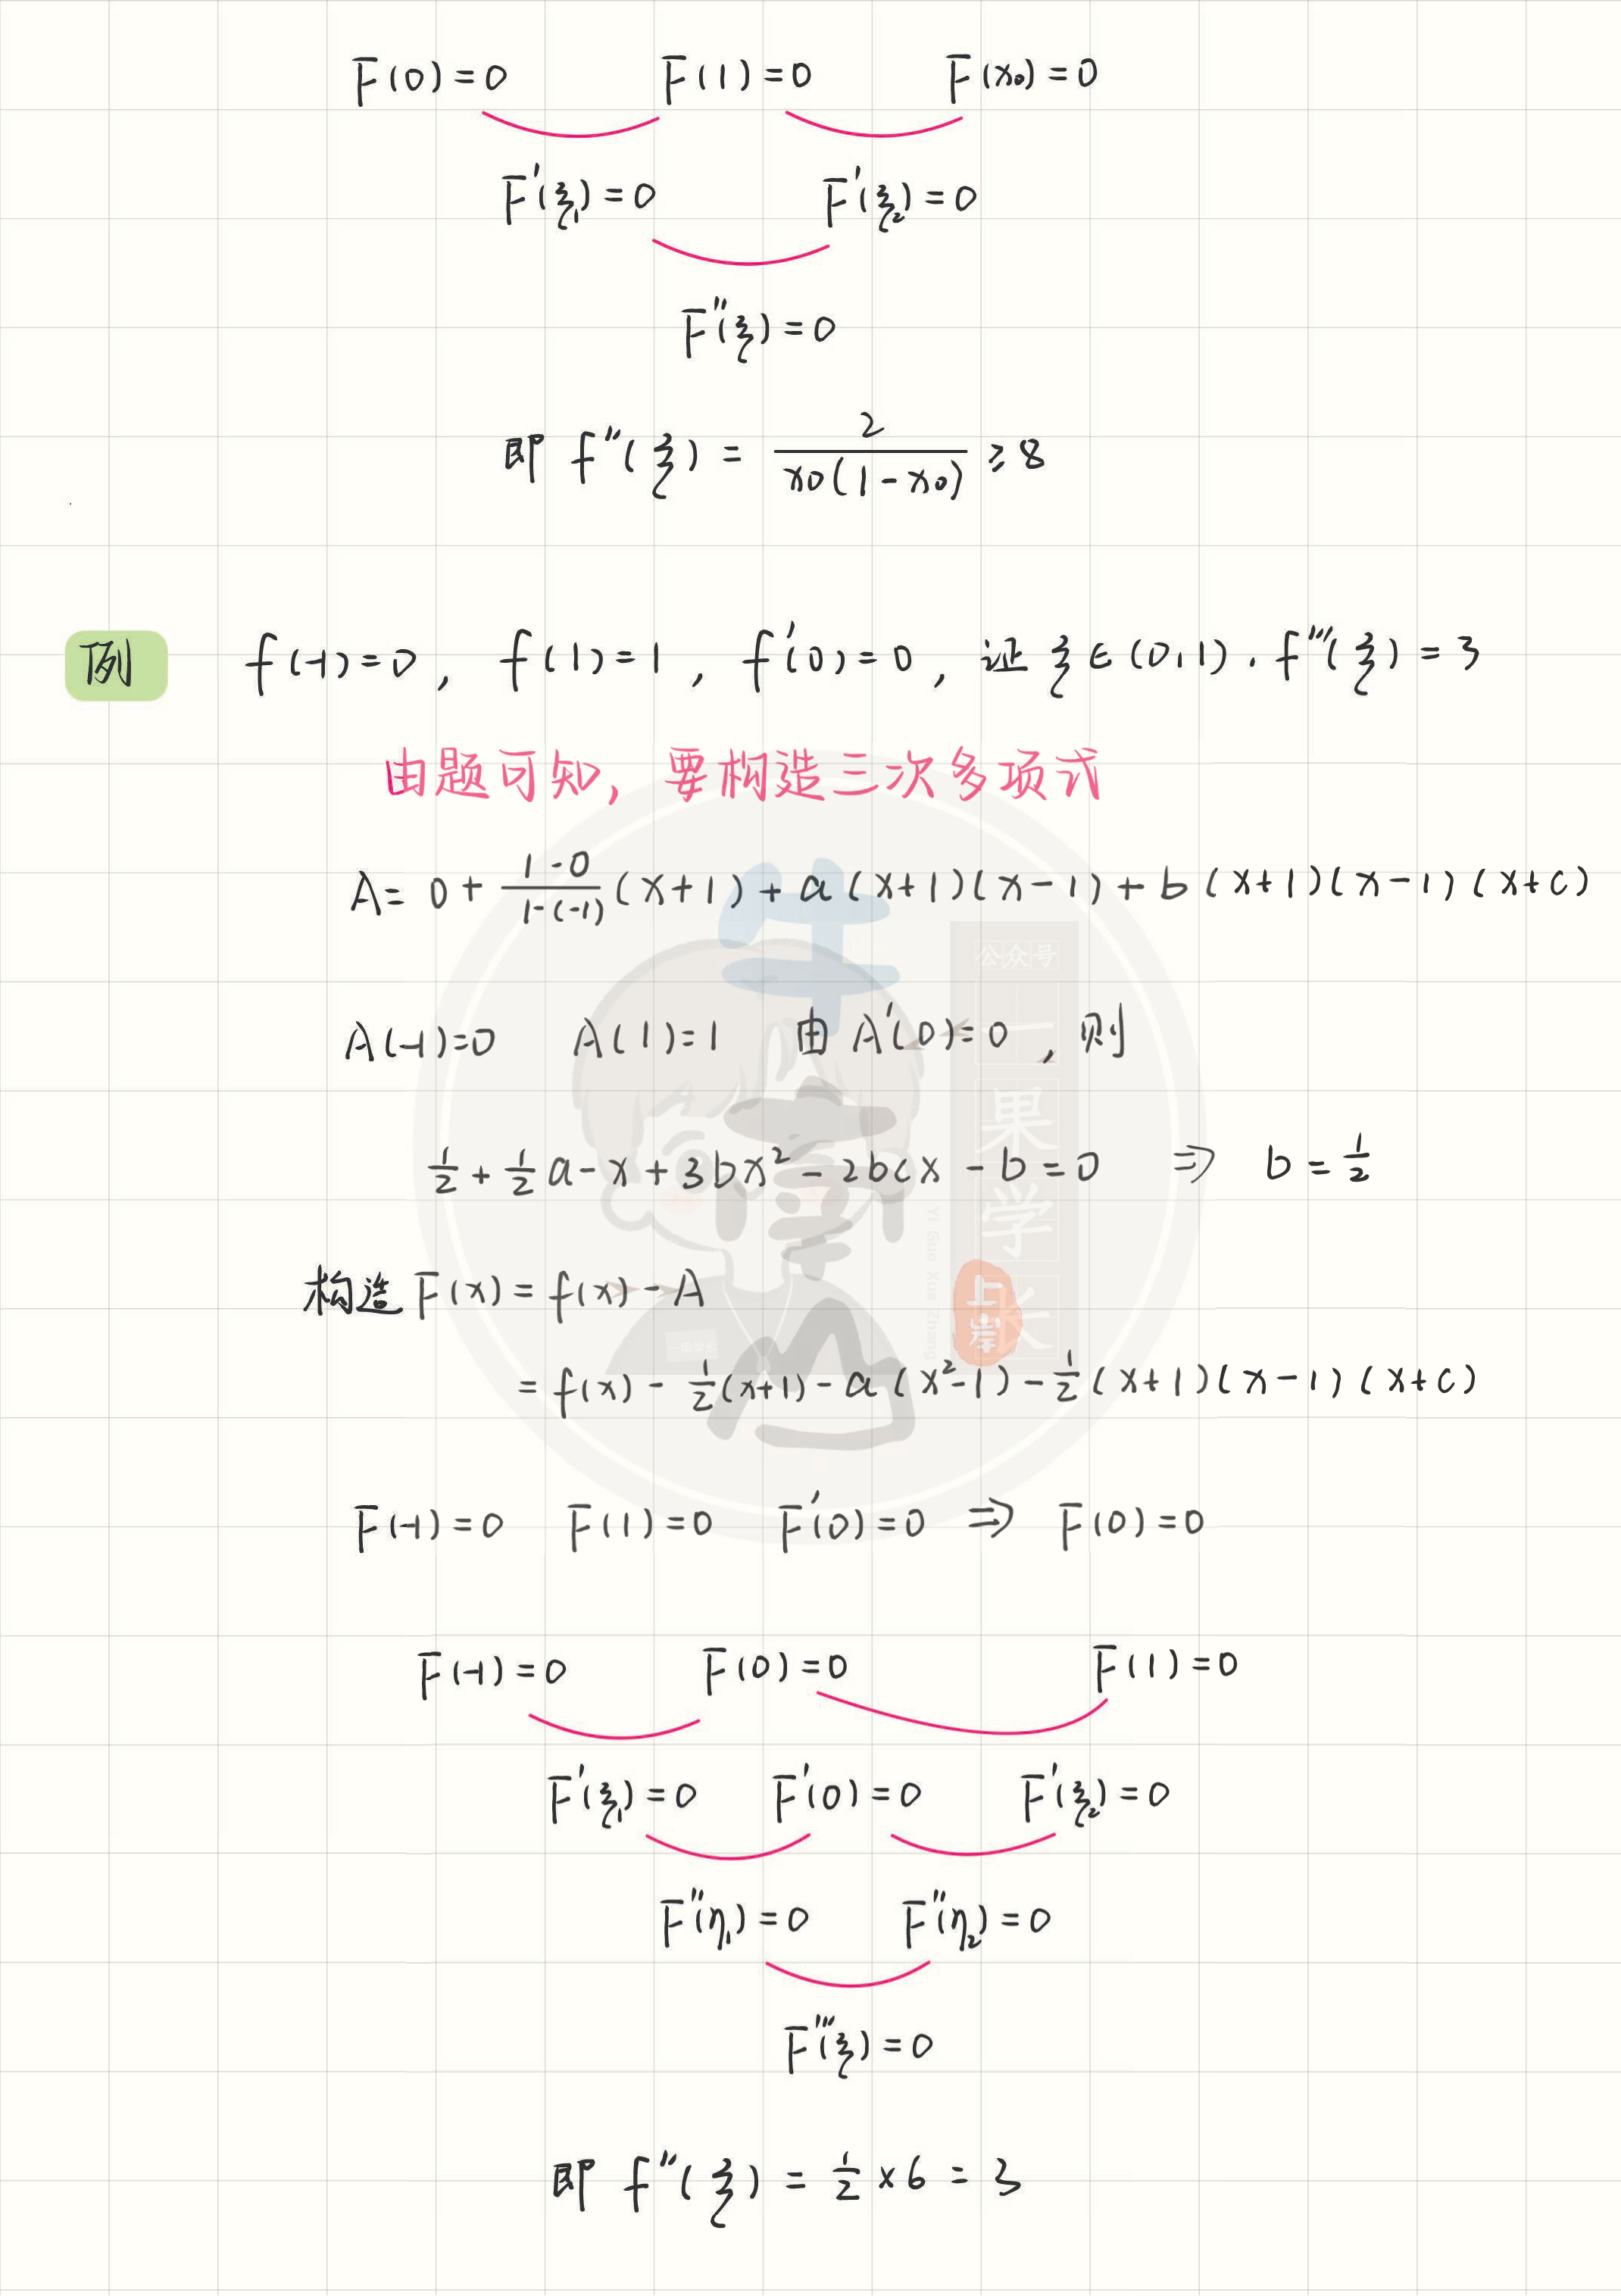 F(0)=0 F(1)=0 F(x₀)=0
F'(ξ₁)=0 F'(ξ₂)=0
F''(ξ)=0
即 f''(ξ) = 2/(x₀(1-x₀)) ≥ 8
例 f(-1)=0, f(1)=1, f'(0)=0, 证 ξ∈(0,1). f'''(ξ)=3
由题可知, 要构造三次多项式
A= 0 + (1-0)/(1-(-1)) (x+1) + a(x+1)(x-1) + b(x+1)(x-1)(x+c)
A(-1)=0 A(1)=1 由 A'(0)=0, 则
1/2 + 1/2 a - x + 3bx² - 2bcx - b = 0 ⇒ b = 1/2
构造 F(x) = f(x) - A
= f(x) - 1/2(x+1) - a(x²-1) - 1/2(x+1)(x-1)(x+c)
F(-1)=0 F(1)=0 F'(0)=0 ⇒ F(0)=0
F(-1)=0 F(0)=0 F(1)=0
F'(ξ₁)=0 F'(0)=0 F'(ξ₂)=0
F''(η₁)=0 F''(η₂)=0
F'''(ξ)=0
即 f''(ξ) = 1/2 × 6 = 3
公众号
一果学长
Yi Guo Xue Zhang
上岸